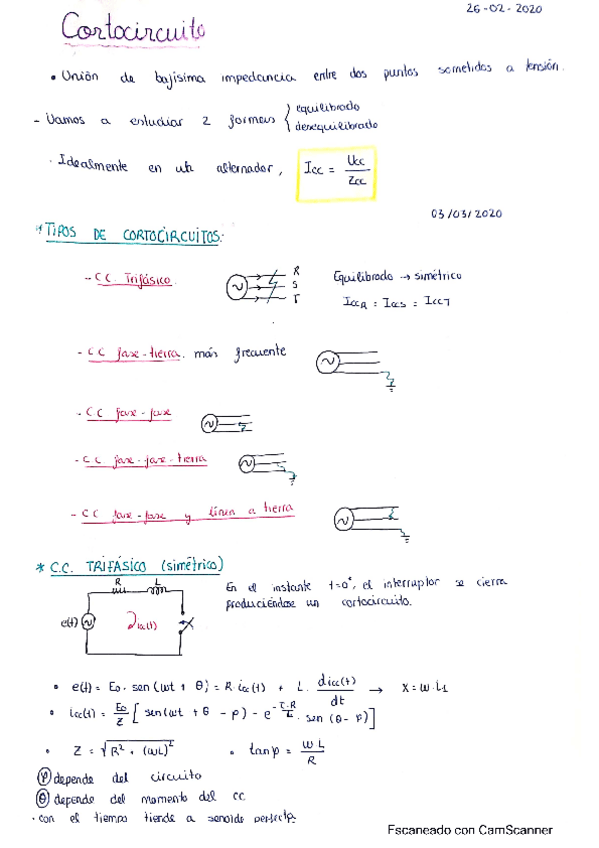 26-02-2020
Cortocircuito
• Unión de bajísima impedancia entre dos puntos sometidos a tensión.
- Vamos a estudiar 2 formas { equilibrado
desequilibrado
· Idealmente en un alternador, Icc = Ucc / Zcc
03/03/2020
* TIPOS DE CORTOCIRCUITOS:
- C.C. Trifásico.
R
S
T
Equilibrado → simétrico
IccR = IccS = IccT
- CC fase-tierra. más frecuente
- CC fase-fase
- CC fase-fase-tierra
- CC fase-fase y línea a tierra
* C.C. TRIFÁSICO (simétrico)
R L
e(t)
icc(t)
En el instante t=0⁺, el interruptor se cierra
produciéndose un cortocircuito.
• e(t) = Eo. sen (wt + θ) = R.icc(t) + L. dicc(t)/dt → X = w.L1
• icc(t) = Eo/Z [ sen(wt + θ - φ) - e^-t.R/L. sen (θ - φ)]
• Z = √R² + (wL)²
• tan φ = wL/R
φ depende del circuito
θ depende del momento del cc
· con el tiempo tiende a senoide perfecta.
Escaneado con CamScanner